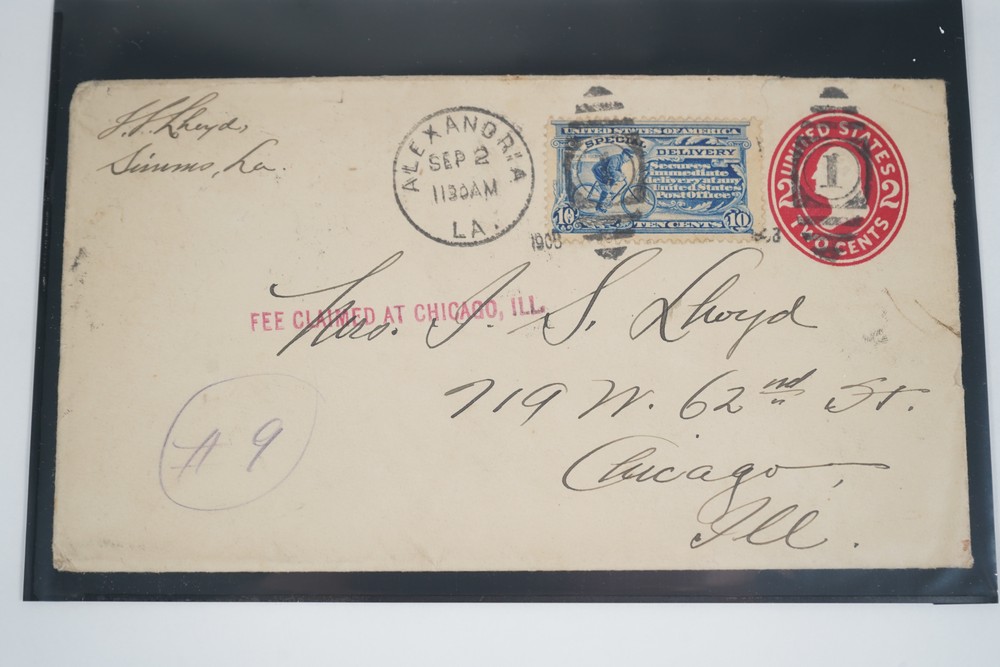 J. S. Lloyd,
Simms, La.
ALEXANDRIA
SEP 2
1130AM
LA.
1908
UNITED STATES OF AMERICA
SPECIAL DELIVERY
Secures
immediate
delivery at any
United States
Post Office.
10 TEN CENTS 10
1
UNITED STATES
2 2
TWO CENTS
FEE CLAIMED AT CHICAGO, ILL.
Mrs. J. S. Lloyd
719 W. 62nd St.
Chicago,
Ill.
# 9